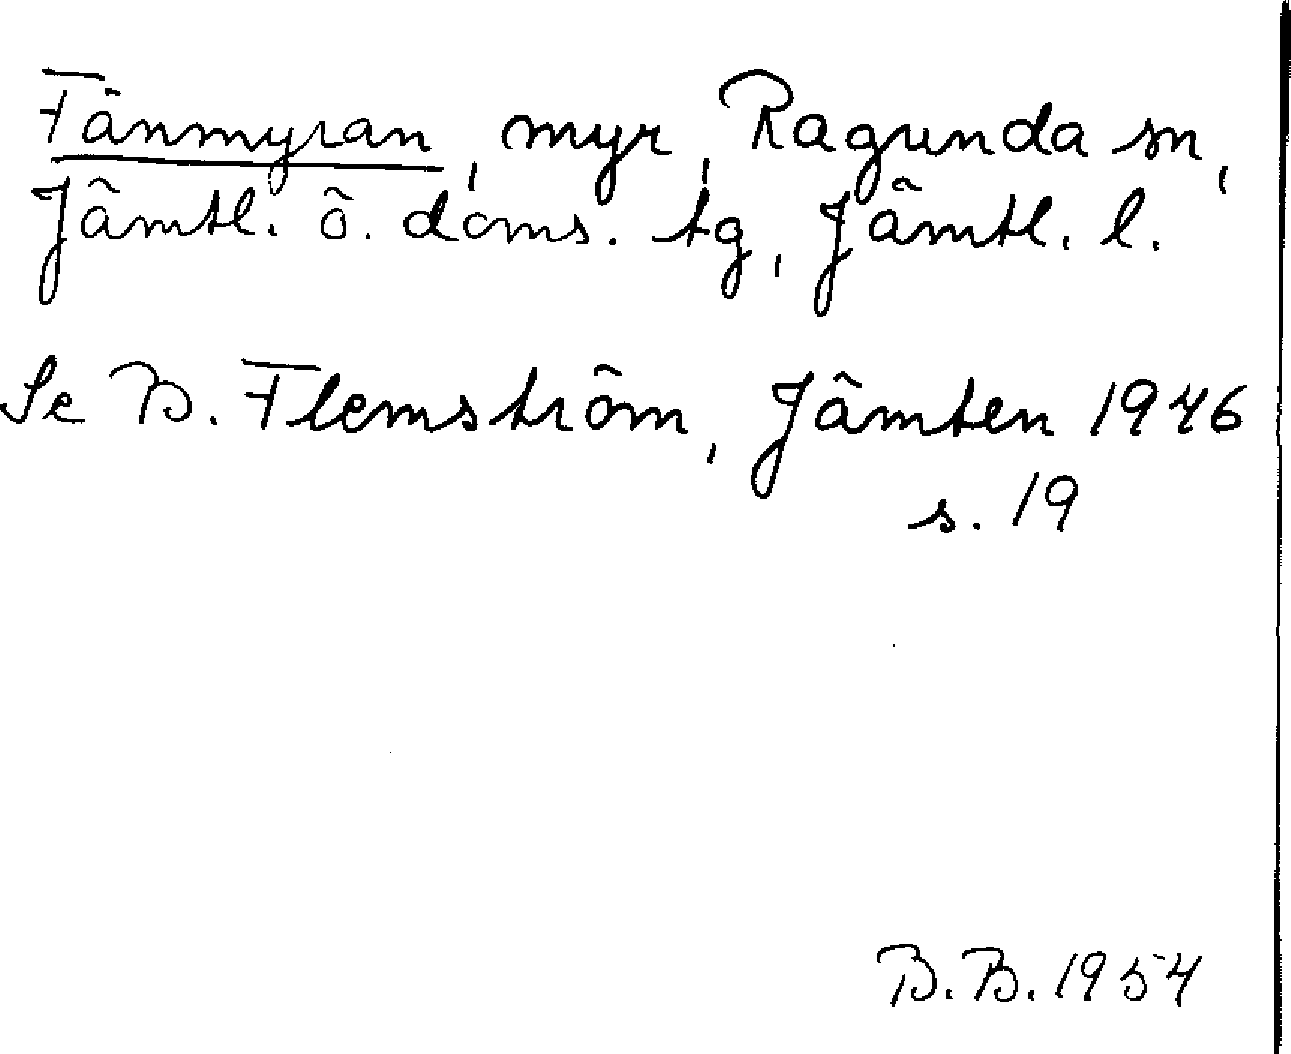 Fänmyran, myr, Ragunda sn,
Jämtl. ö. doms. tg, Jämtl. l.
Se B. Flemström, Jämten 1946
s. 19
B.B. 1954